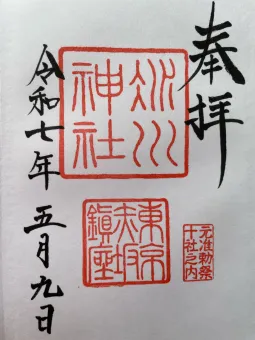 奉拝
氷川
神社
東京
赤坂
鎮座
元准勅祭
十社之内
令和七年 五月九日